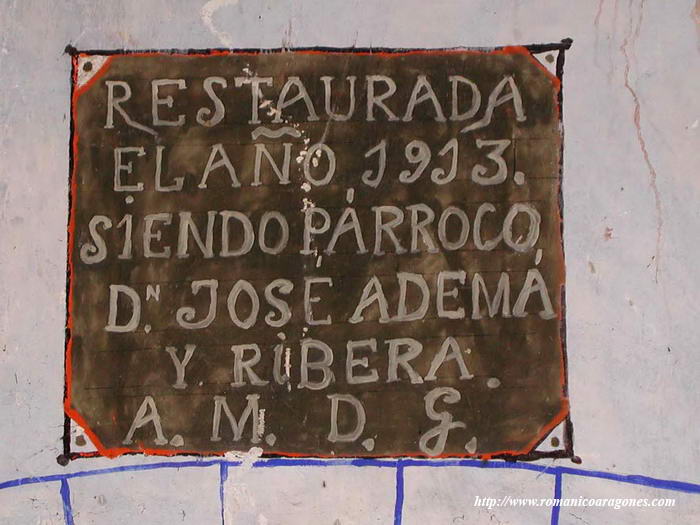 RESTAURADA
EL AÑO, 1913.
SIENDO PÁRROCO,
D.N JOSÉ ADEMÁ
Y. RIBERA.
A. M. D. G.
http://www.romanicoaragones.com